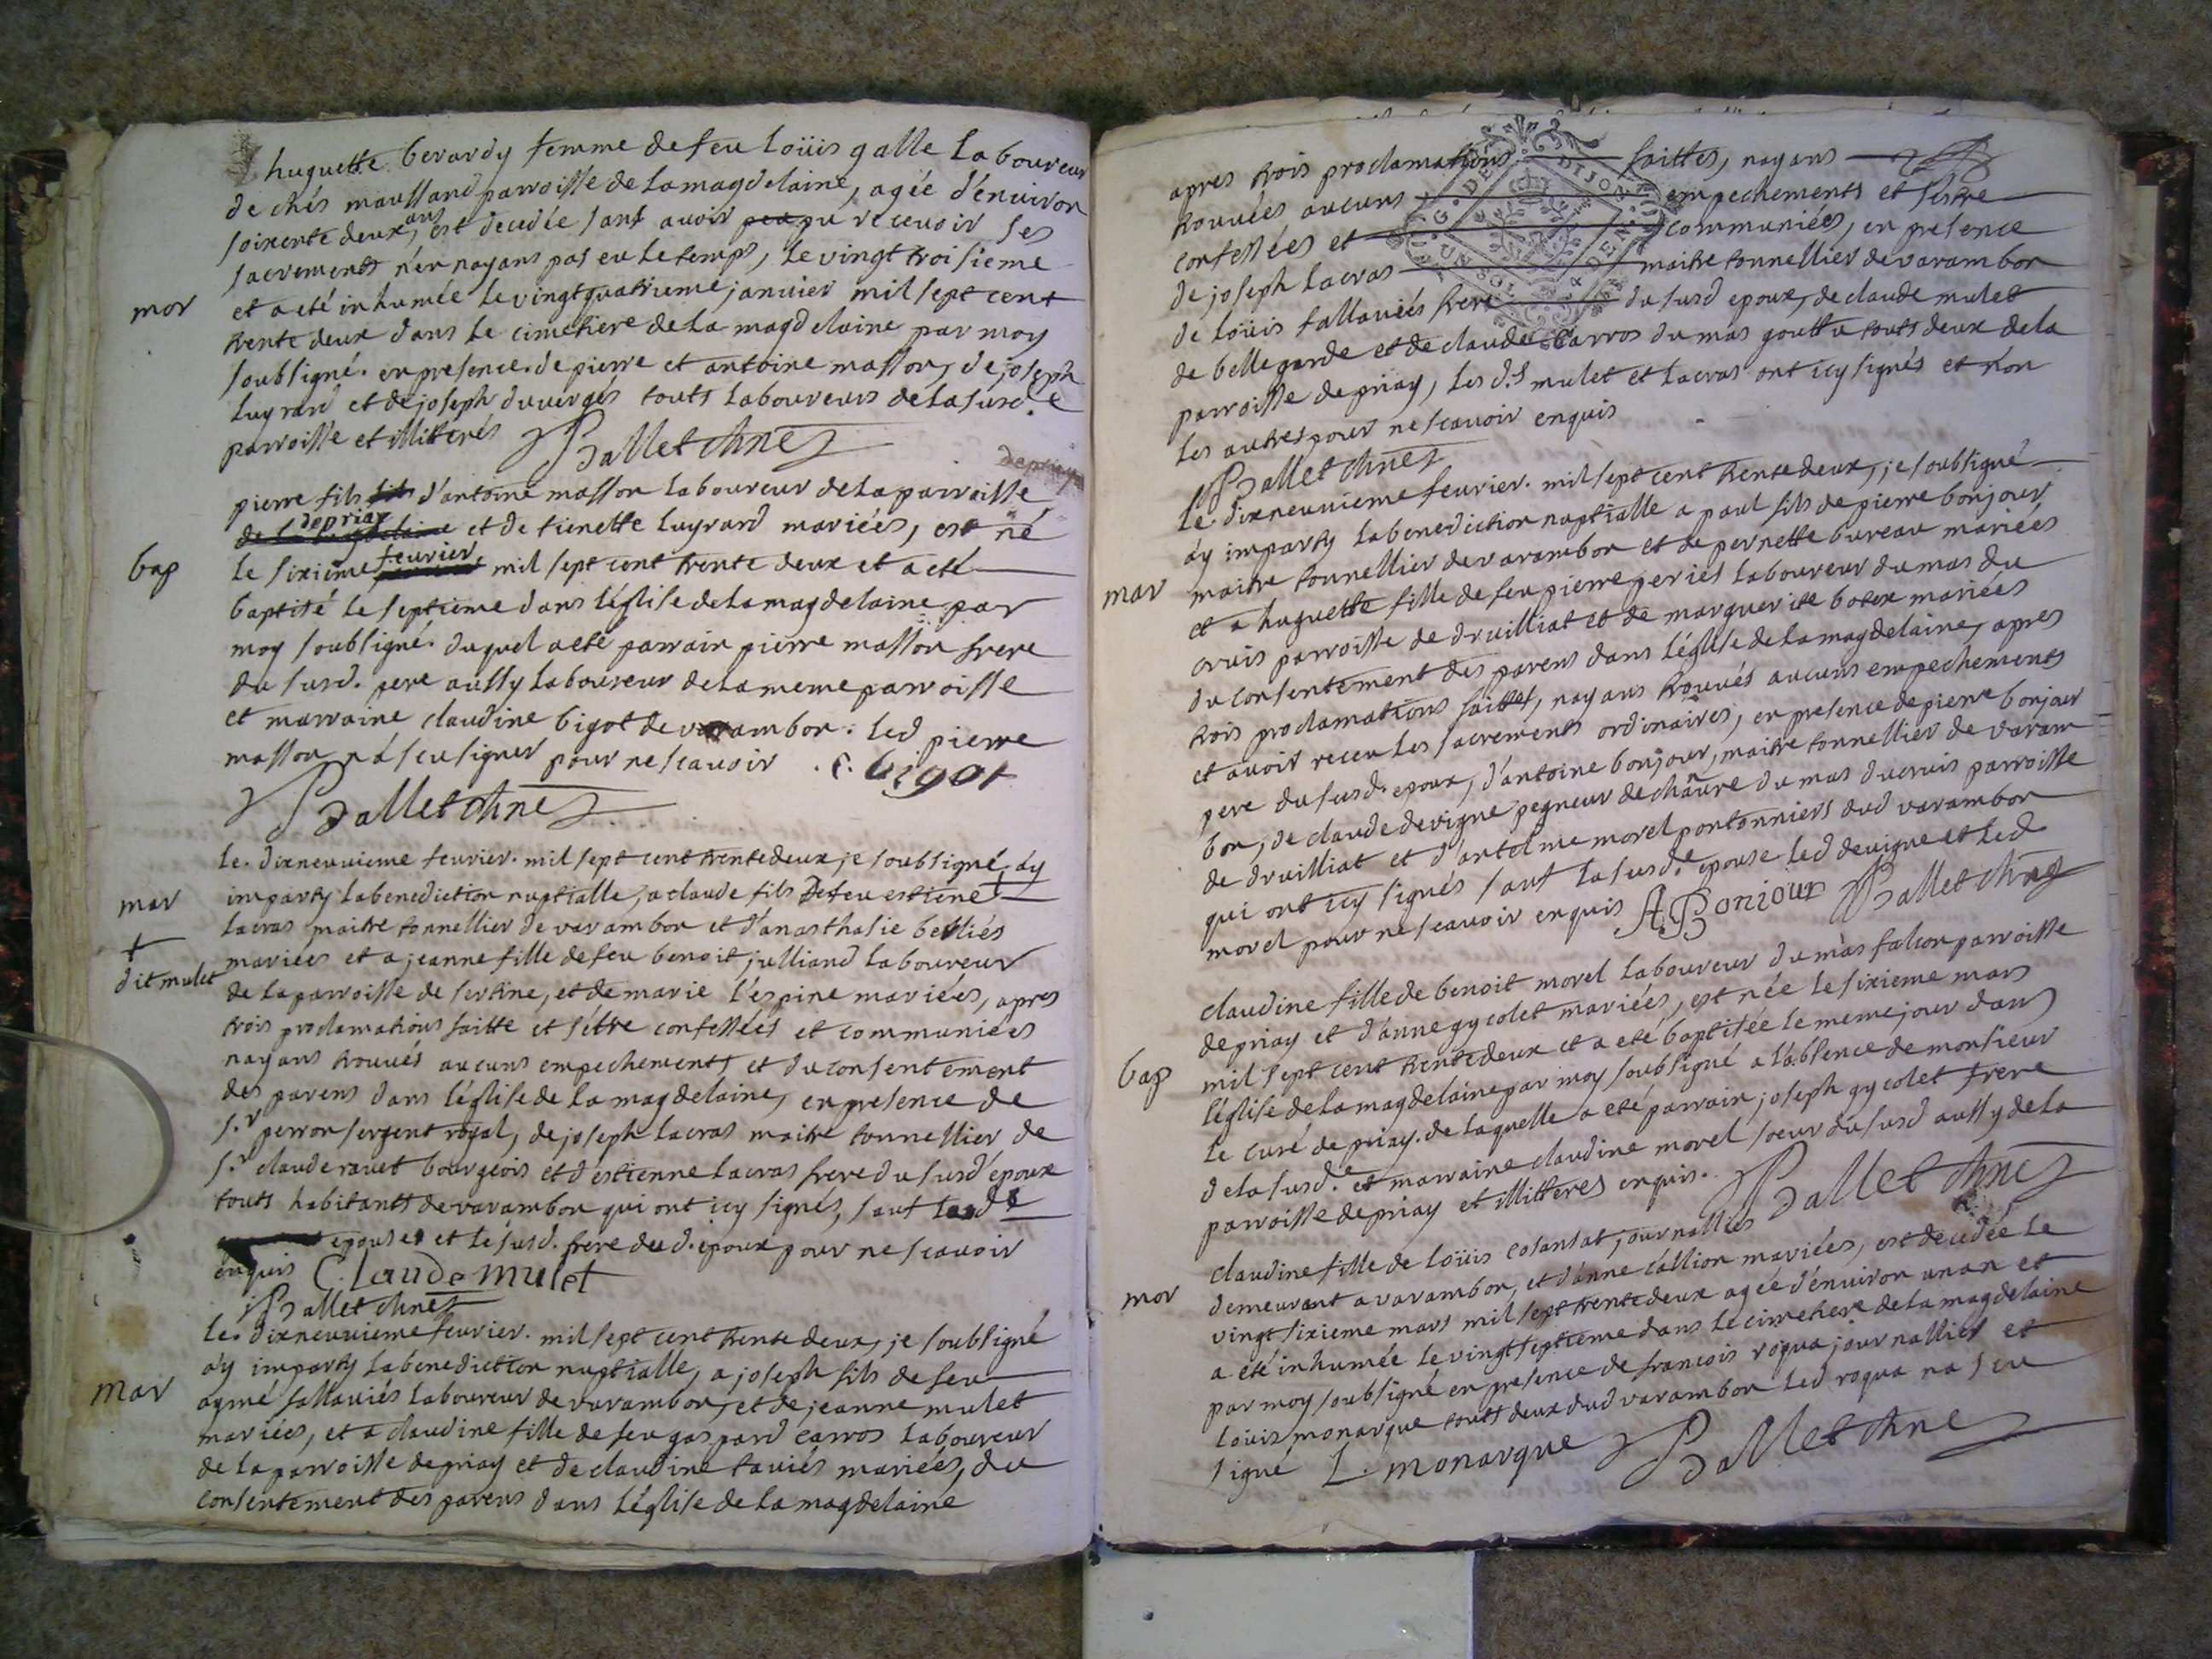 huguette berardy femme de feu loüis galle laboureur
de chés maussand parroisse de la magdelaine, agée d'énuiron
soixente deux, ans est decedée sans auoir pu receuoir ses
sacrements n'en nayans pas eu le temps, le vingt troisieme
mor
et a eté inhumée le vingt quatrieme januier mil sept cent
trente deux dans le cimetiere de la magdelaine par moy
soubsigné. en presence. de pierre et antoine masson, de joseph
luyrard et de joseph duuergés touts laboureurs de la susd.e
parroisse et illitterés Ballet chne
pierre fils d'antoine masson laboureur de la parroisse
de priay et de tienette luyrard mariées, est né
bap
le sixieme feurier mil sept cent trente deux et a eté
baptisé le septieme dans l'église de la magdelaine par
moy soubsigné. duquel a eté parrain pierre masson frere
du susd. pere aussy laboureur de la meme parroisse
et marraine claudine bigot de varambon. led pierre
masson n'a sçu signer pour ne scauoir . c. bigot
Ballet chne
le. dixneuuieme feurier. mil sept cent trente deux je soubsigné, áy
mar
imparty la benediction nuptialle, a claude fils de feu estiene
+
dit mulet
lacras maitre tonnellier de varambon et d'anasthasie berliés
mariées et a jeanne fille de feu benoit julliand laboureur
de la parroisse de sertine, et de marie l'éspine mariées, apres
trois proclamations faitte et s'étre confessées et communiées
nayans trouués aucuns empechements et du consentement
des parens dans l'église de la magdelaine, en presence de
s.r perron sergent royal, de joseph lacras maitre tonnellier de
s.r claude rauet bourgeois et d'estienne lacras frere du susd époux
touts habitants de varambon qui ont icy signés, sauf lad.e
epouse et le susd. frere dud. époux pour ne scauoir
enquis Claude mulet
Ballet chne
le. dixneuuieme feurier. mil sept cent trente deux, je soubsigné
áy imparty la benediction nuptialle, a joseph fils de feu
mar
aymé fallauiés laboureur de varambon, et de jeanne mulet
mariées, et a claudine fille de feu gaspard carros laboureur
de la parroisse de priay et de claudine tauiés mariées, du
consentement des parens dans l'église de la magdelaine
apres trois proclamations faittes, nayans
trouuées aucuns empechements et s'éstre
confessées et communiées, en presence
de joseph lacras maitre tonnellier de varambon
de loüis fallauiés frere du susd epoux, de claude mulet
de belle garde et de claude carros du mas gouttu touts deux de la
parroisse de priay, les d.s mulet et lacras ont icy signés et non
les autres pour ne scauoir enquis
Ballet chne
le. dixneuuieme feurier. mil sept cent trente deux, je soubsigné
áy imparty la benediction nuptialle a paul fils de pierre bonjour
mar
maitre tonnellier de varambon et de pernette bureau mariées
et a huguette fille de feu pierre periés laboureur du mas du
cruis parroisse de druilliat et de marguerite botex mariées
du consentement des parens dans l'église de la magdelaine, apres
trois proclamations faittes, nayans trouués aucuns empechements
et auoir receu les sacrements ordinaires, en presence de pierre bonjour
pere du susd. epoux, d'antoine bonjour, maitre tonnellier de varam
bon, de claude devigne pegneur de chanure du mas du cruis parroisse
de druilliat et d'antelme morel pontonniers dud varambon
qui ont icy signés sauf la susd.e epouse led devigne et led
morel pour ne scauoir enquis A Bonjour Ballet chne
claudine fille de benoit morel laboureur du mas falcon parroisse
de priay et d'anne gycolet mariées, est née le sixieme mars
bap
mil sept cent trente deux et a eté baptisée le meme jour dans
l'église de la magdelaine par moy soubsigné a l'absence de monsieur
le curé de priay. de laquelle a eté parrain joseph gycolet frere
de la susd.e et marraine claudine morel soeur du susd aussy de la
parroisse de priay et illitteres enquis. Ballet chne
claudine fille de loüis colansat, journallier
mor
demeurant a varambon, et d'anne callion mariées, est decedée le
vingt sixieme mars mil sept trente deux agée d'énuiron un an et
a été inhumée le vingt septieme dans le cimetiere de la magdelaine
par moy soubsigné en presence de francois roqua journallier et
loüis monarque touts deux dud varambon led roqua na scu
signé L. monarque Ballet chne